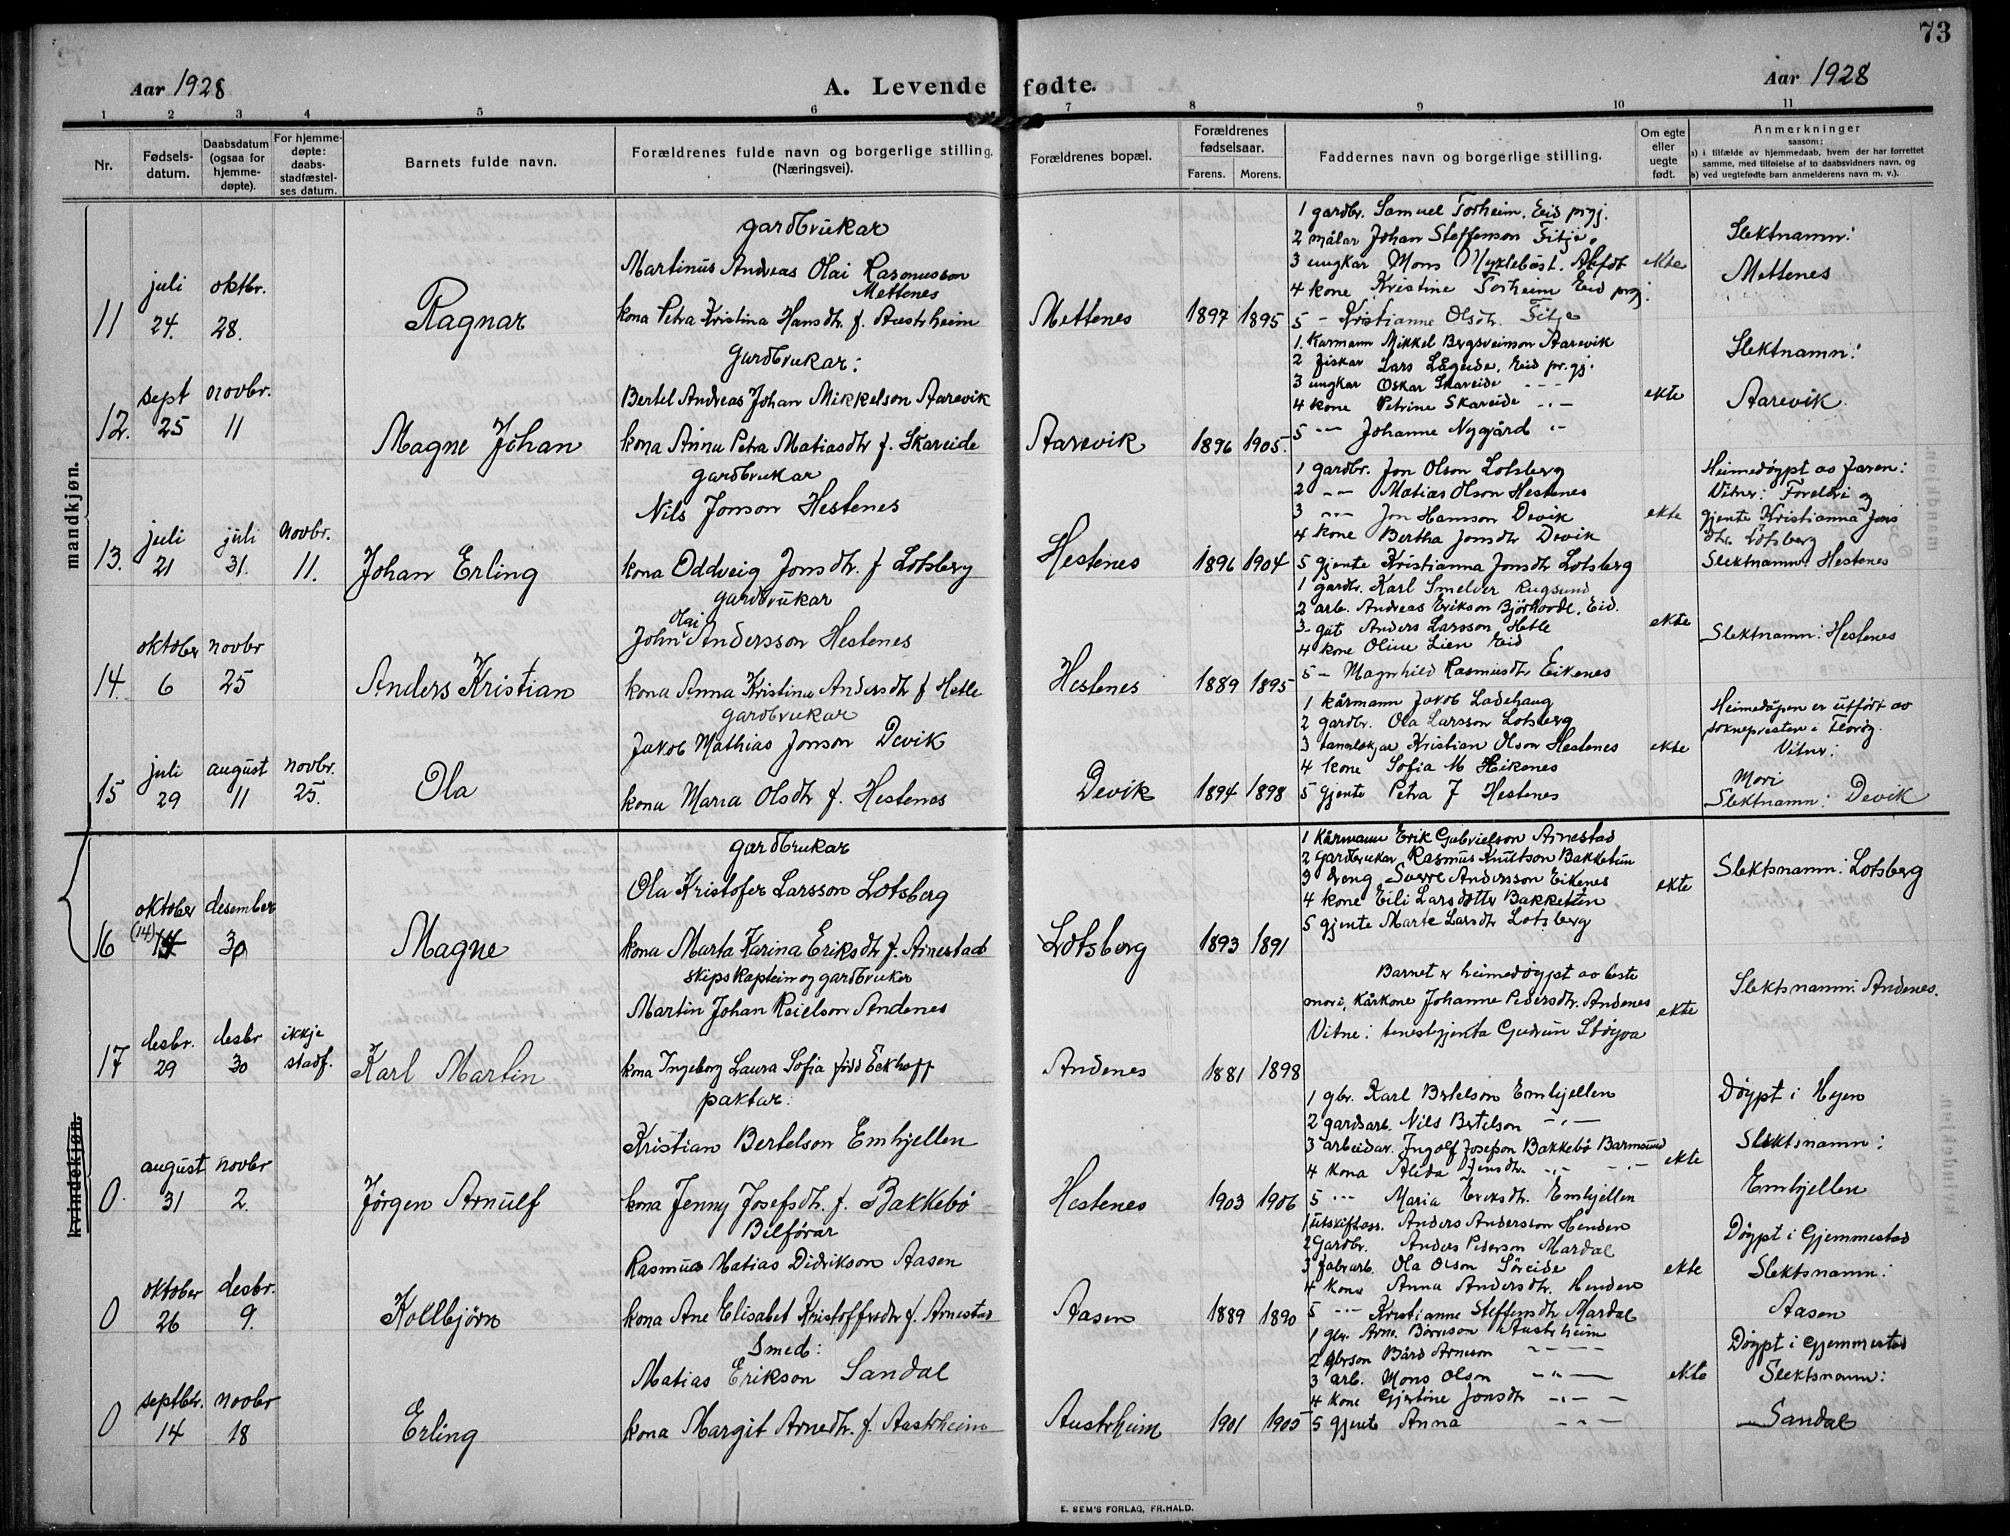 73
Aar 1928
A. Levende fødte.
Aar 1928
1 2 3 4 5 6 7 8 9 10 11
Nr.
Fødsels-
datum.
Daabsdatum
(ogsaa for
hjemme-
døpte).
For hjemme-
døpte:
daabs-
stadfæstel-
ses datum.
Barnets fulde navn.
Forældrenes fulde navn og borgerlige stilling.
(Næringsvei).
Forældrenes bopæl.
Forældrenes
fødselsaar.
Farens. Morens.
Faddernes navn og borgerlige stilling.
Om egte
eller
uegte
født.
Anmerkninger
saasom:
a) i tilfælde av hjemmedaab, hvem der har forrettet
samme, med tilføielse af to daabsvidners navn, og
b) ved uegtefødte barn anmelderens navn m. v.).
mandkjøn.
11
juli
24.
oktbr.
28.
Ragnar
gardbrukar
Martinus Andreas Olai Rasmusson
Mettenes
kona Petra Kristina Hansdtr f. Austrheim
Mettenes
1897 1895
1 gardbr. Samuel Torheim, Eid prgj.
2 målar Johan Steffenson Fitje.
3 ungkar Mons Myklebost.
4 kone Kristine Torheim Eid prgj.
5 — Kristianne Olsdtr. Fitje
ekte
Slektnamn:
Mettenes
12.
sept
25
novbr.
11
Magne Johan
Gardbrukar:
Bertel Andreas Johan Mikkelson Aarevik
kona Anna Petra Matiasdtr f. Skareide
Aarevik
1896 1905.
1. Karmann Mikkel Bergsveinson Aarevik
2 fiskar Lars Lågeide, Eid pr.gj.
3 ungkar Oskar Skareide
4 kone Petrine Skareide
5 Johanne Nygård
ekte
Slektnamn:
Aarevik
13.
juli
21
juli
31.
novbr.
11.
Johan Erling
gardbrukar
Nils Jonson Hestenes
kona Oddveig Jonsdtr. f Lotsberg
Hestenes
1896 1904
1 gardbr. Jon Olson Lotsberg
2 Matias Olson Hestenes
3 Jon Hanson Devik
4 kone Bertha Jonsdtr Devik
5 gjente Kristianna Jonsdtr Lotsberg
ekte
Heimedøypt av faren:
Vitner: Foreldri og
gjente Kristianna Jons
dtr. Lotsberg
Slektnamn: Hestenes
14.
oktober
6
novbr
25
Anders Kristian
gardbrukar
Olai
John Andersson Hestenes
kona Anna Kristina Andersdtr f Hetle
Hestenes
1889 1895
1 gardbr. Karl Smelver Rugsund
2 arb. Andreas Erikson Bjørhovde, Eid.
3 gut Anders Larsson Hetle
4 kone Oline Lien Eid
5 — Magnhild Rasmusdtr Eikenes
ekte
Slektnamn: Hestenes
15
juli
29
august
11
novbr.
25.
Ola
gardbrukar
Jakob Mathias Jonson Devik
kona Maria Olsdtr f. Hestenes
Devik
1894 1898
1 kårmann Jakob Ladehaug
2 gardbr. Ola Larsson Lotsberg
3 Kristian Olson Hestenes
4 kone Sofia M Heikenes
5 gjente Petra J Hestenes
ekte
Heimedåpen er utført av
soknepresten i Florø.
Vitner:
Mori
Slektnamn: Devik
16
oktober
(14)
desember
30
Magne
gardbrukar
Ola Kristofer Larsson Lotsberg
kona Marta Karina Eriksdtr f. Arnestad
Lotsberg
1893 1891
1 Kårmann Erik Gabrielson Arnestad
2 Gardbrukar Rasmus Knutson Bakketun
3 dreng Sverre Andersson Eikenes
4 kone Eili Larsdotter Bakketun
5 gjente Marte Larsdtr Lotsberg
ekte
Slektsnamn: Lotsberg
17
desbr.
29
desbr
30
ikkje
stadf.
Karl Martin
skipskaptein og gardbruker
Martin Johan Reielson Andenes
kona Ingeborg Laura Sofia fødd Eckhoff
Andenes
1881 1898
Barnet er heimedøypt av beste
mori, kårkone Johanne Pedersdtr. Andenes
Vitne: tenestgjenta Gudrun Støyva
ekte
Slektsnamn: Andenes.
kvindkjøn.
0
august
31
novbr
2.
Jørgen Arnulf
paktar:
Kristian Bertelson Emhjellen
kona Jenny Josefsdtr. f. Bakkebø
Hestenes
1903 1906
1 gbr. Karl Bertelson Emhjellen
2 gardsarb. Nils Bertelson
3 arbeidar. Ingolf Josefson Bakkebø Barmsund
4 kona Alida Jensdtr
5 Maria Eriksdtr. Emhjellen
ekte
Døypt i Hyen
Slektsnamn:
Emhjellen
0
oktober
26
desbr.
9.
Kollbjørn
Bilførar
Rasmus Matias Didrikson Aasen
kona Ane Elisabet Kristoffersdtr f. Arnestad
Aasen
1889 1890
1 utskiftass. Anders Andersson Henden
2 Gardbr. Anders Pederson Mardal
3 fabrarb. Ola Olson Søreide
4 kona Anna Andersdtr. Henden
5 Kristianne Steffensdtr Mardal
ekte
Døypt i Gjemmestad
Slektsnamn:
Aasen
0
septbr.
14
novbr
18
Erling
Smed:
Matias Erikson Sandal
kona Margit Arnedtr. f. Austrheim
Austrheim
1901 1905
1 gbr. Arne Børreson Austrheim
2 gbrson Bård Arneson
3 arb. Mons Olson
4 kone Gjertine Jonsdtr
5 gjente Anna
ekte
Døypt i Gjemmestad
Slektsnamn:
Sandal
E. SEM'S FORLAG, FR.HALD.